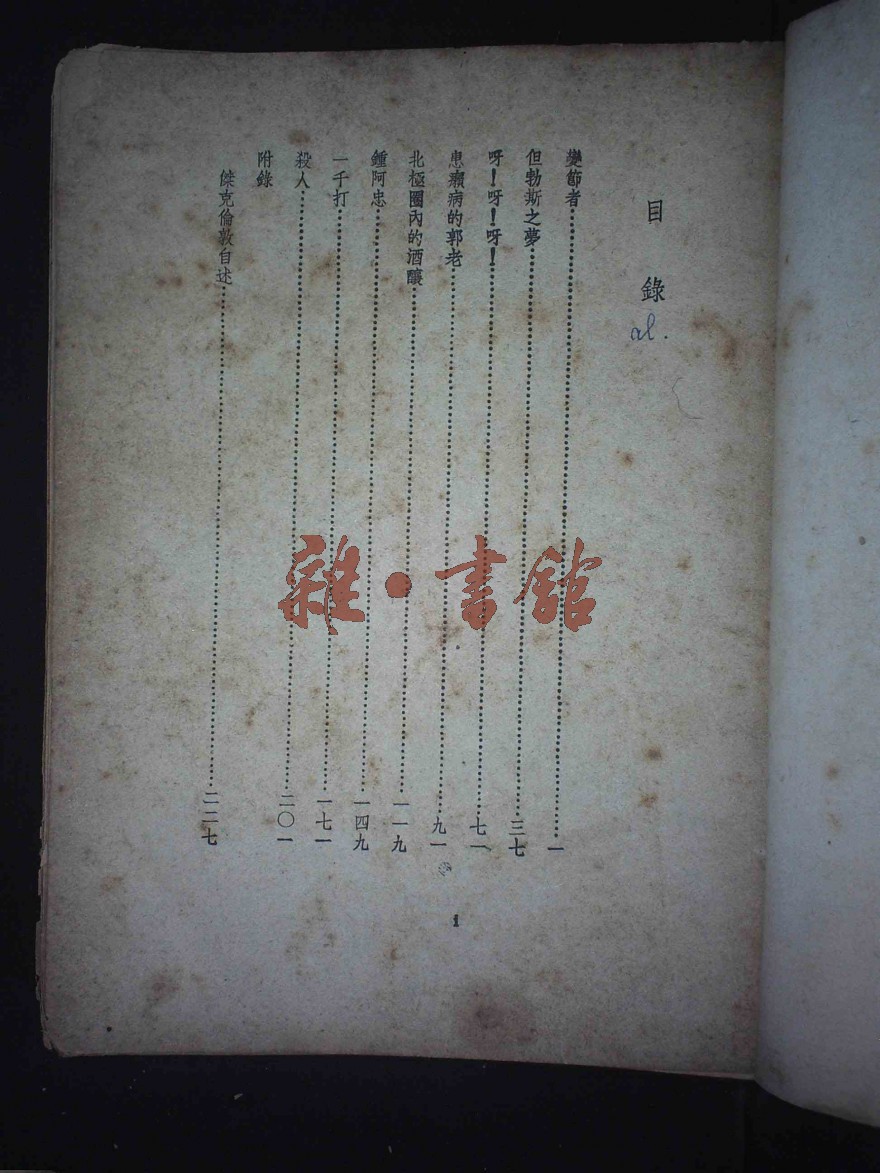 目錄
al.
變節者⋯⋯⋯⋯一
但勃斯之夢⋯⋯⋯⋯三七
呀！呀！呀！⋯⋯⋯⋯七一
患癩病的郭老⋯⋯⋯⋯九一
北極圈內的酒釀⋯⋯⋯⋯一一九
鍾阿忠⋯⋯⋯⋯一四九
一千打⋯⋯⋯⋯一七一
殺人⋯⋯⋯⋯二〇一
附錄
傑克倫敦自述⋯⋯⋯⋯二二七
1
雜·書館